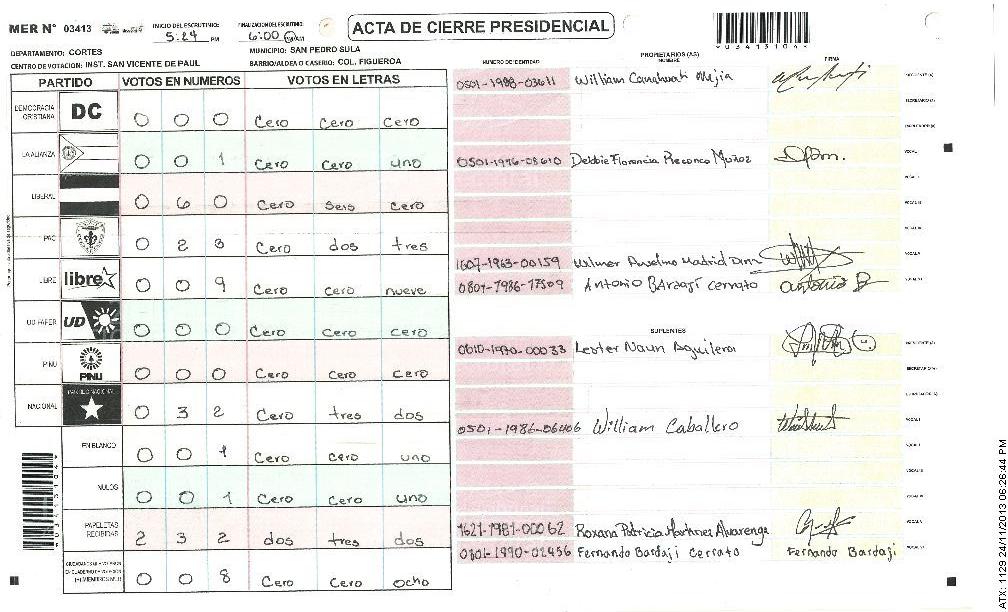 MER N° 03413
INICIO DEL ESCRUTINIO:
5:24 PM
FINALIZACION DEL ESCRUTINIO:
6:00 PM AM
ACTA DE CIERRE PRESIDENCIAL
03413104
DEPARTAMENTO: CORTES
MUNICIPIO: SAN PEDRO SULA
CENTRO DE VOTACION: INST. SAN VICENTE DE PAUL
BARRIO/ALDEA O CASERIO: COL. FIGUEROA
PARTIDO VOTOS EN NUMEROS VOTOS EN LETRAS
DEMOCRACIA CRISTIANA DC 0 0 0 Cero Cero Cero
LA ALIANZA 0 0 1 Cero Cero uno
LIBERAL 0 6 0 Cero seis Cero
PAC 0 2 3 Cero dos tres
LIBRE libre 0 0 9 Cero Cero nueve
UD FAPER UD 0 0 0 Cero Cero cero
PINU PINU 0 0 0 Cero Cero cero
NACIONAL PARTIDO NACIONAL 0 3 2 Cero tres dos
EN BLANCO 0 0 1 Cero cero uno
NULOS 0 0 1 Cero Cero uno
PAPELETAS RECIBIDAS 2 3 2 dos tres dos
0 0 8 Cero Cero ocho
PROPIETARIOS (AS)
NUMERO DE IDENTIDAD NOMBRE FIRMA
William Mejia
PRESIDENTE (A)
SECRETARIO (A)
ESCRUTADOR (A)
Debbie Florencia Muñoz
VOCAL I
VOCAL II
VOCAL III
1607-1963-00159 Wilmer Anselmo Madrid
Antonio Bardají cerrato Antonio B
SUPLENTES
0610-1990-00033 Lester Naun Aguilera
PRESIDENTE (A)
SECRETARIO (A)
ESCRUTADOR (A)
0501-1986-06406 William Caballero
VOCAL I
1621-1981-00062 Roxana Patricia Martinez Alvarenga
0801-1990-02456 Fernando Bardají Cerrato Fernando Bardají
ATX: 1129 24/11/2013 06:26:44 PM